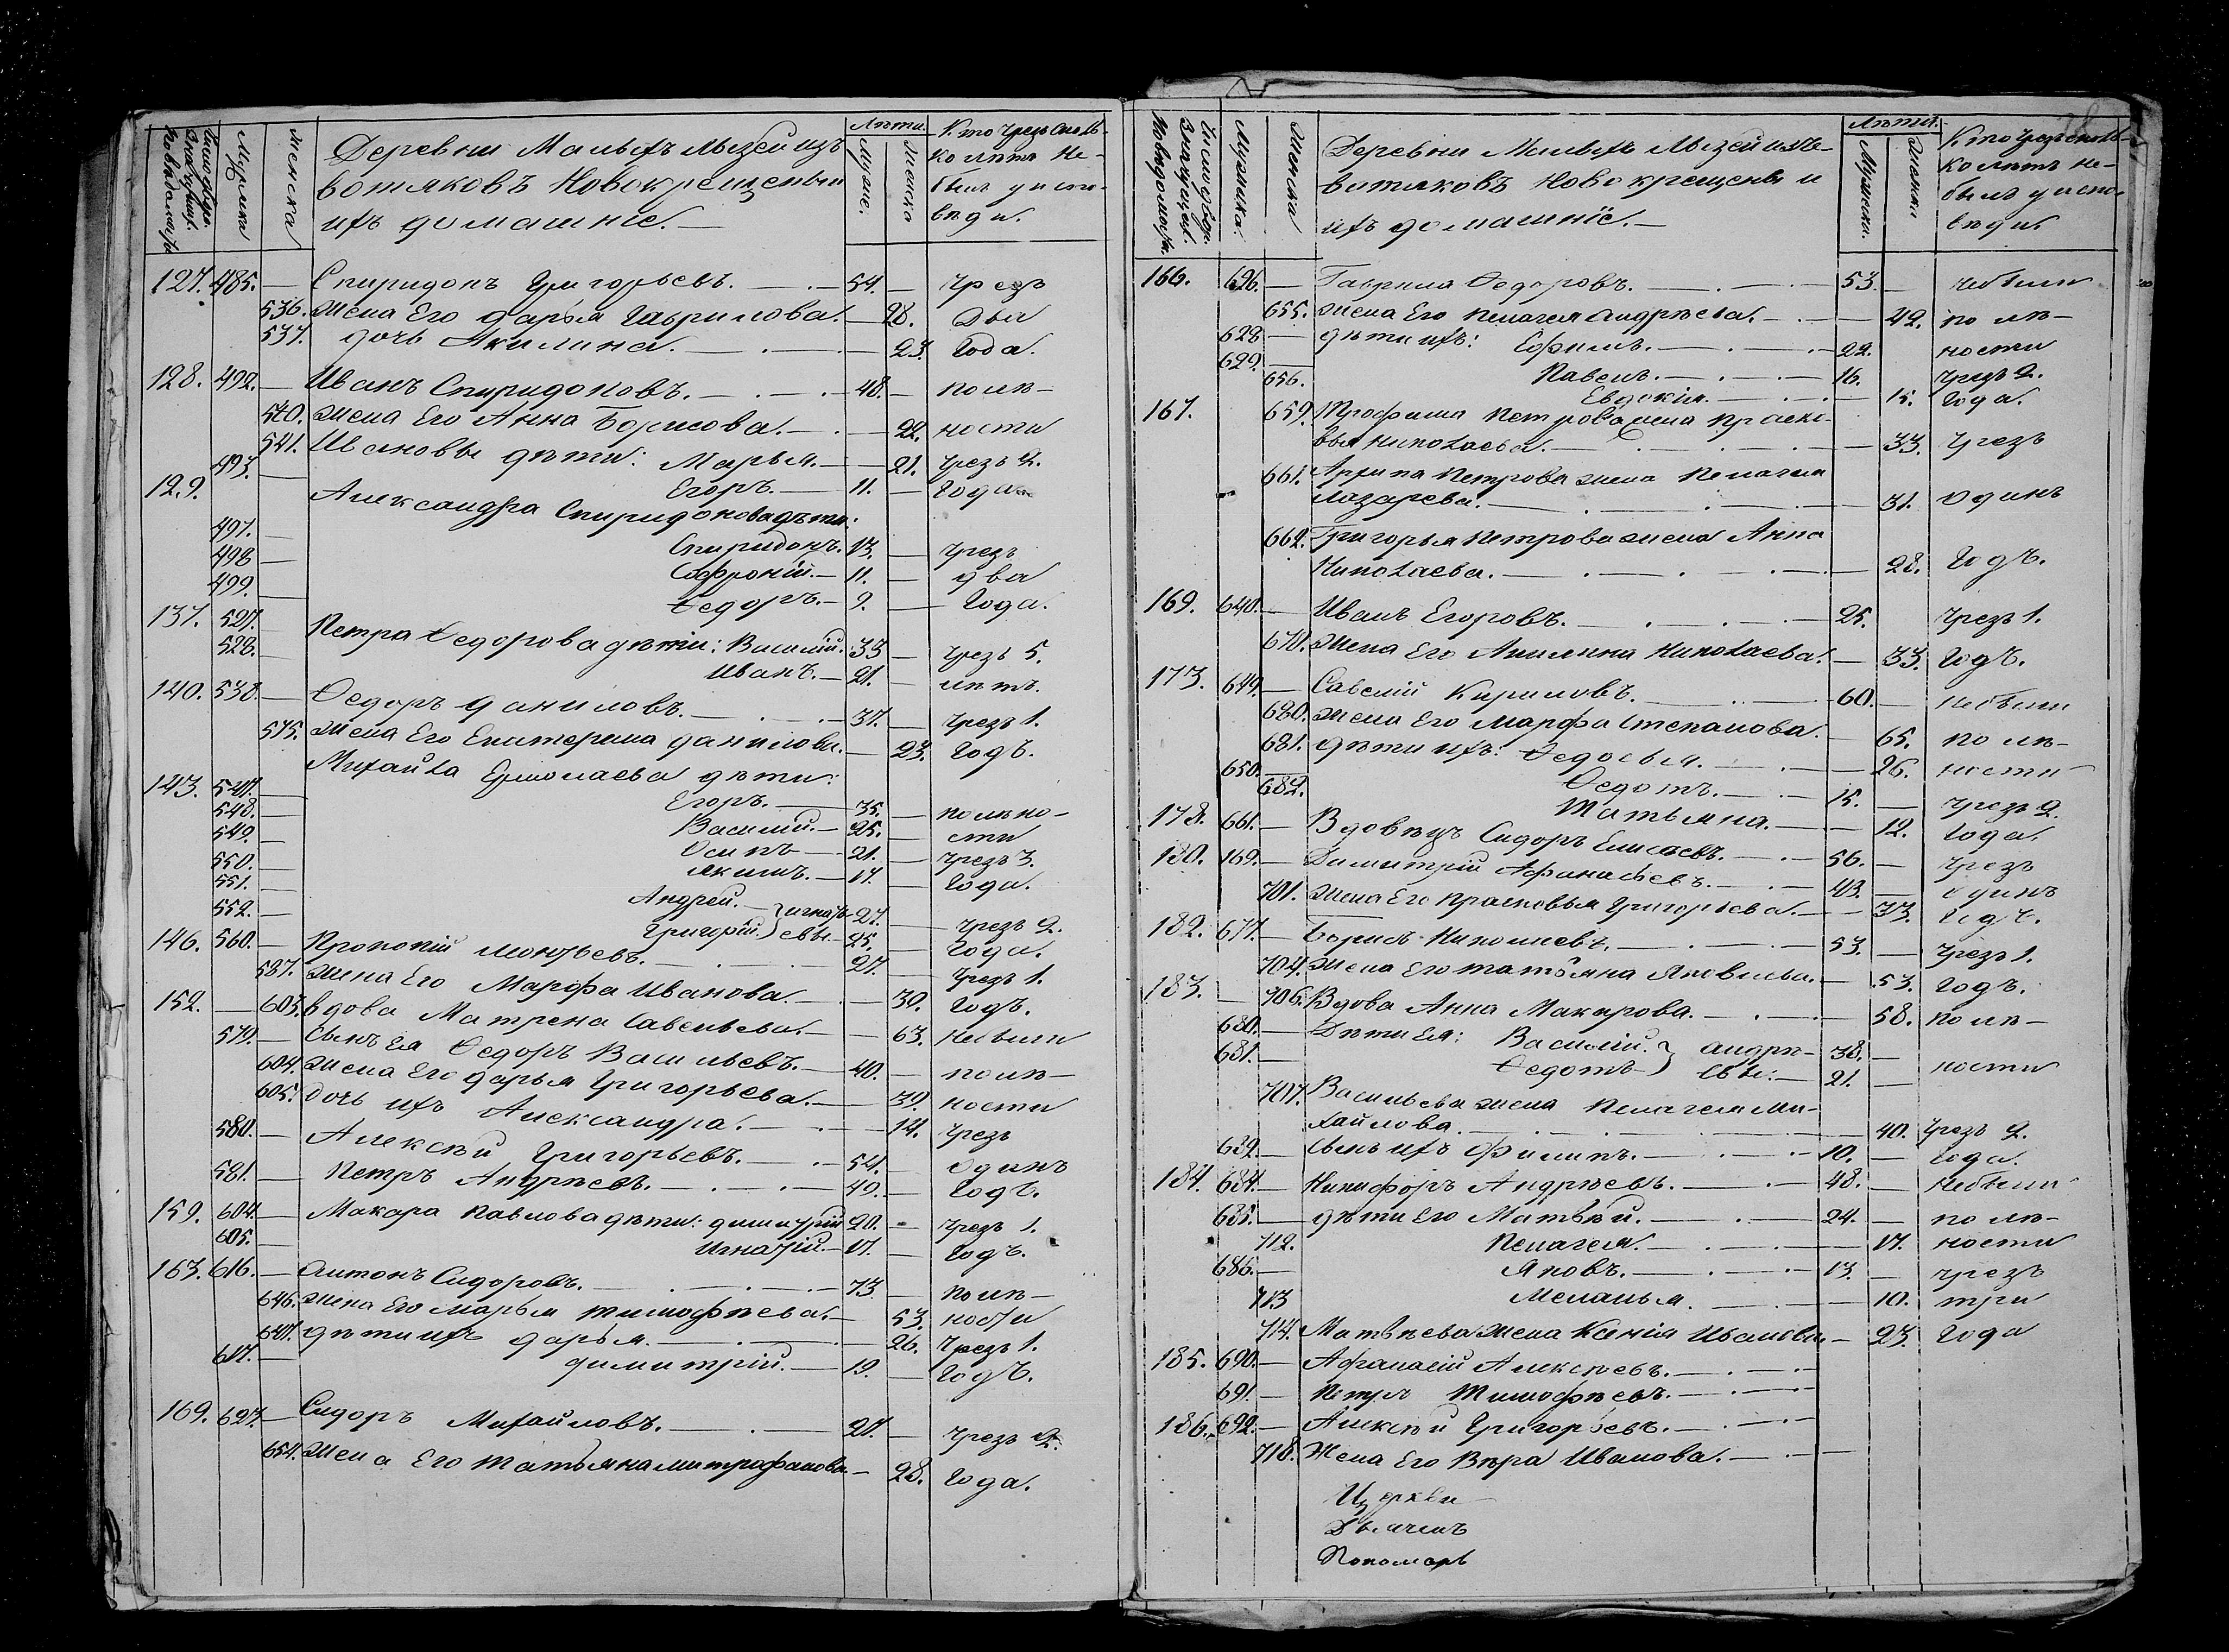 Деревни Малыхъ Лызей изъ
вотяковъ Новокрещеныи
ихъ домашніе.
Лѣта.
Мужеска
Женска
Муже.
Женска
Кто чрезъ сколь-
ко лѣтъ не-
былъ уиспо-
вѣди.
127. 485. — Спиридонъ Григорьевъ. — 54. — чрезъ
536. Жена Его Дарья Гаврилова. — 28. Два
537. дочь Акилина. — 23. Года.
128. 492. — Иванъ Спиридоновъ. — 48. — полѣ-
540. Жена Его Анна Борисова. — 22. ности
541. Ивановы дѣти: Марья. — 21. чрезъ 2.
493. — Егоръ. — 11. — Года
129. Александра Спиридонова дѣти:
497. — Спиридонъ. 13. — чрезъ
498 — Софроній. — 11. — два
499. — Ѳедоръ. — 9. — Года.
137. 527. Петра Ѳедорова дѣти: Василій. 33 — чрезъ 5.
528. — Иванъ. — 21. — лѣтъ.
140. 538. — Ѳедоръ Даниловъ. — 37. — чрезъ 1.
575. Жена Его Екатерина Данилова. — 23. Годъ.
Михайла Ермолаева дѣти:
143. 547. — Егоръ. — 35. — полѣно-
548. — Василий. — 25. — сти
549. — Осипъ — 21. — чрезъ 3.
550. — Якимъ. — 17. — Года.
551. — Андрей. — 27. — чрезъ 2.
552. — Григорій. } Игнать-евы. — 25. — Года.
146. 560. — Прокопій Леонтьевъ. — 27. — чрезъ 1.
587. Жена Его Марфа Иванова. — 30. Годъ.
152. — 603. Вдова Матрена Савельева. — 63. Небыли
579. — Сынъ Ея Ѳедоръ Васильевъ. — 40. — полѣ-
604. Жена Его Дарья Григорьева. — 39. ности
605. Дочь ихъ Александра. — 14. чрезъ
580. — Алексѣй Григорьевъ. — 54. — Одинъ
581. — Петръ Андреевъ. — 49. — Годъ.
159. 604. — Макара Павлова дѣти: Димитрій 20. — чрезъ 1.
605. — Игнатій. — 17. — Годъ.
163. 616. — Антонъ Сидоровъ. — 73 — полѣ-
646. Жена Его Марья Тимофѣева. — 53. ности
647. дѣти ихъ Дарья. — 26. Чрезъ 1.
617. — Димитрій. — 19. — Годъ.
169. 627. — Сидоръ Михайловъ. — 27. — чрезъ 2.
654. Жена Его Татьяна Митрофанова. — 28. Года.
Деревни Малыхъ Лызей изъ во-
тяковъ Новокрещены и
ихъ домашніе. —
Лѣта.
Мужеска.
Женска
Мужеска.
Женска
Кто чрезъ сколь-
ко лѣтъ не-
былъ уиспо-
вѣди.
166. 626. — Гаврила Ѳедоровъ. — 53. — Небыли
655. Жена Его Пелагея Андрѣева. — 42. по лѣ-
628 — дѣти ихъ: Ефимъ. — 22. ности
629. — Павелъ. — 16. чрезъ 2.
656. Евдокія. — 15. Года.
167. 659. Трофима Петрова жена Праско-
вья Николаева. — 33. чрезъ
661. Архипа Петрова жена Пелагея
Лазарева. — 31. Одинъ
662. Григорья Петрова жена Анна
Николаева. — 28. Годъ.
169. 640. — Иванъ Егоровъ. — 25. чрезъ 1.
670. Жена Его Акилина Николаева. — 33. Годъ.
173. 649. — Савелій Кириловъ. — 60. — Небыли
680. Жена Его Марфа Степанова. — 65. по лѣ-
681. дѣти ихъ: Ѳедосья. — 26. ности
650. — Ѳедотъ. — 15. — чрезъ 2.
682. Татьяна. — 12. Года.
178. 661. — Вдовецъ Сидоръ Елисѣевъ. — 56. — чрезъ
180. 169. — Димитрій Афанасьевъ. — 43. — Одинъ
701. Жена Его Прасковья Григорьева. — 33. Годъ.
182. 677. — Борисъ Николаевъ. — 53. — чрезъ 1.
704. Жена Его Татьяна Яковлева. — 53. Годъ.
183. — 706. Вдова Анна Макарова. — 58. По лѣ-
680. — Дѣти Ея: Василій. } Андрѣ- 38. — ности
681. — Ѳедотъ } евы: — 21. —
707. Васильева жена Пелагея Ми-
хайлова. — 40. чрезъ 2.
682. — Сынъ ихъ Филипъ. — 10. — Года.
184. 684. — Никифоръ Андрѣевъ. — 48. — Небыли
685. — дѣти Его Матвѣй. — 24. — по лѣ-
712. Пелагея. — 17. ности
686. — Яковъ. — 13. — чрезъ
713 Меланья. — 10. три
714. Матвѣева жена Ксенія Иванова. — 23. Года
185. 690. — Афанасій Алексѣевъ. —
691 — Петръ Тимофѣевъ. —
186. 692. — Алексѣй Григорьевъ. —
718. Жена Его Вѣра Иванова. —
Церкви
Дьячекъ
Пономарь